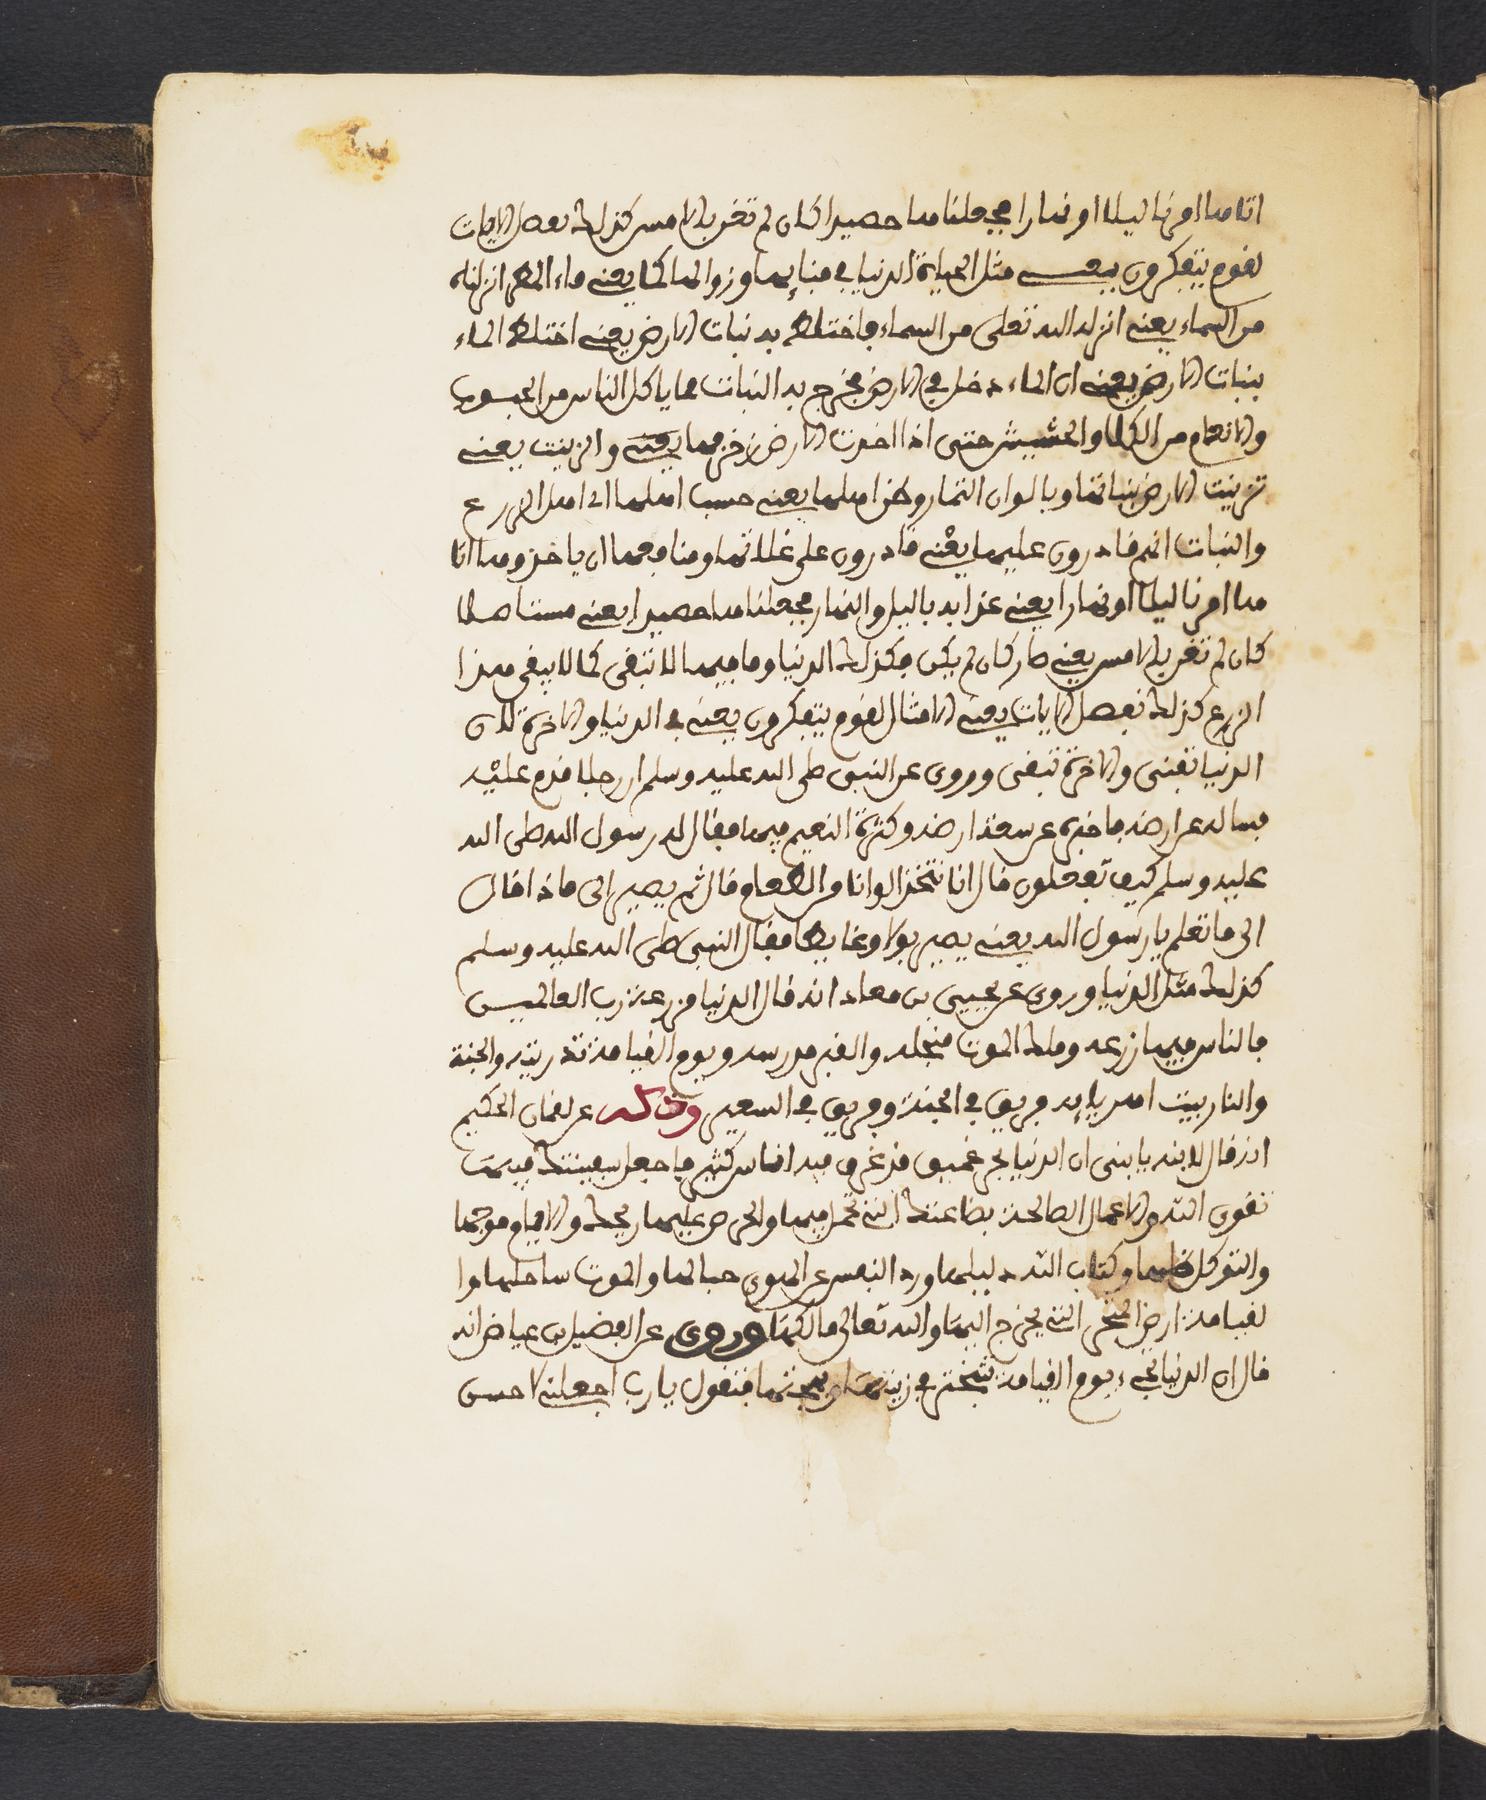 اتاها امرنا ليلا او نهارا فجعلناها حصيدا كان لم تغن بالامس كذلك نفصل الايات
لقوم يتفكرون يعني مثل الحياة الدنيا في فنايها وزوالها كما يعني ماء المطر انزلناه
من السماء يعني انزله الله تعلى من السماء فاختلط به نبات الارض يعني اختلط الماء
بنبات الارض يعني ان الماء دخل في الارض فخرج به النبات مما ياكل الناس من الحبوب
والانعام من الكلا والحشيش حتى اذا اخذت الارض زخرفها يعني وازينت يعني
تزينت الارض بنباتها وبالوان الثمار وظن اهلها يعني حسب اهلها اي اهل الزرع
والنبات انهم قادرون عليها يعني قادرون على غلاتها ومنافعها ان ياخذوها اتا
ها امرنا ليلا او نهارا يعني عذابه باليل والنهار فجعلناها حصيدا يعني مستاصلا
كان لم تغن بالامس يعني صار كان لم يكن فكذلك الدنيا وما فيها لا تبقى كما لا يبقى هذا
الزرع كذلك نفصل الايات يعني الامثال لقوم يتفكرون يعني في الدنيا والاخرة لان
الدنيا تفنى والاخرة تبقى وروي عن النبي صلى الله عليه وسلم ان رجلا قدم عليه
فساله عن ارضه فاخبره عن سعة ارضه وكثرة النعيم فيها فقال له رسول الله صلى الله
عليه وسلم كيف تفعلون قال انا نتخذ الوانا من الطعام قال ثم يصير الى ماذا قال
الى ما تعلم يا رسول الله يعني يصير بولا وغايطا فقال النبي صلى الله عليه وسلم
كذلك مثل الدنيا وروي عن يحيى بن معاذ انه قال الدنيا مزرعة رب العالمين
فالناس فيها زرعه وملك الموت منجله والقبر مدرسه ويوم القيامة تذريته والجنة
والنار بيت اهريايه فريق في الجنة وفريق في السعير وذكر عن لقمان الحكيم
انه قال لابنه يا بني ان الدنيا بحر عميق قد غرق فيه اناس كثير فاجعل سفينتك فيها
تقوى الله والاعمال الصالحة بضاعتك التي تحمل فيها والحرص عليها ربحك والايام موجها
والتوكل ظلها وكتاب الله دليلها ورد النفس عن الهوى حبالها والموت ساحلها وا
لقيامة ارض المتجر التي يخرج اليها والله تعالى مالكها وروي عن الفضيل بن عياض انه
قال ان الدنيا تجيء يوم القيامة تتبختر في زينتها وبهجتها فتقول يا رب اجعلني لاحسن